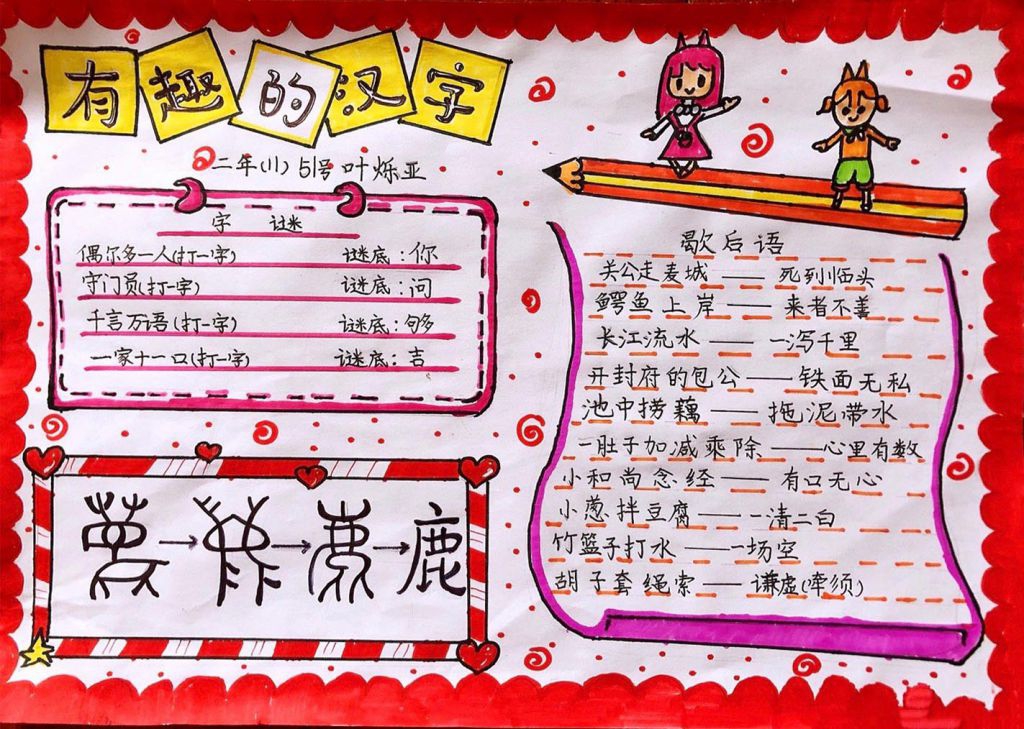 有趣的汉字
二年(11) 51号 叶烁亚
字 谜
偶尔多一人(打一字) 谜底：你
守门员(打一字) 谜底：问
千言万语(打一字) 谜底：够
一家十一口(打一字) 谜底：吉
鹿
歇后语
关公走麦城——死到临头
鳄鱼上岸——来者不善
长江流水——一泻千里
开封府的包公——铁面无私
池中捞藕——拖泥带水
一肚子加减乘除——心里有数
小和尚念经——有口无心
小葱拌豆腐——一清二白
竹篮子打水——一场空
胡子套绳索——谦虚(牵须)